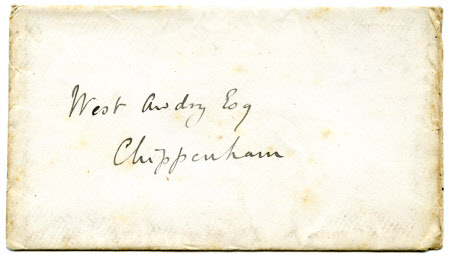 West Awdry Esq
Chippenham